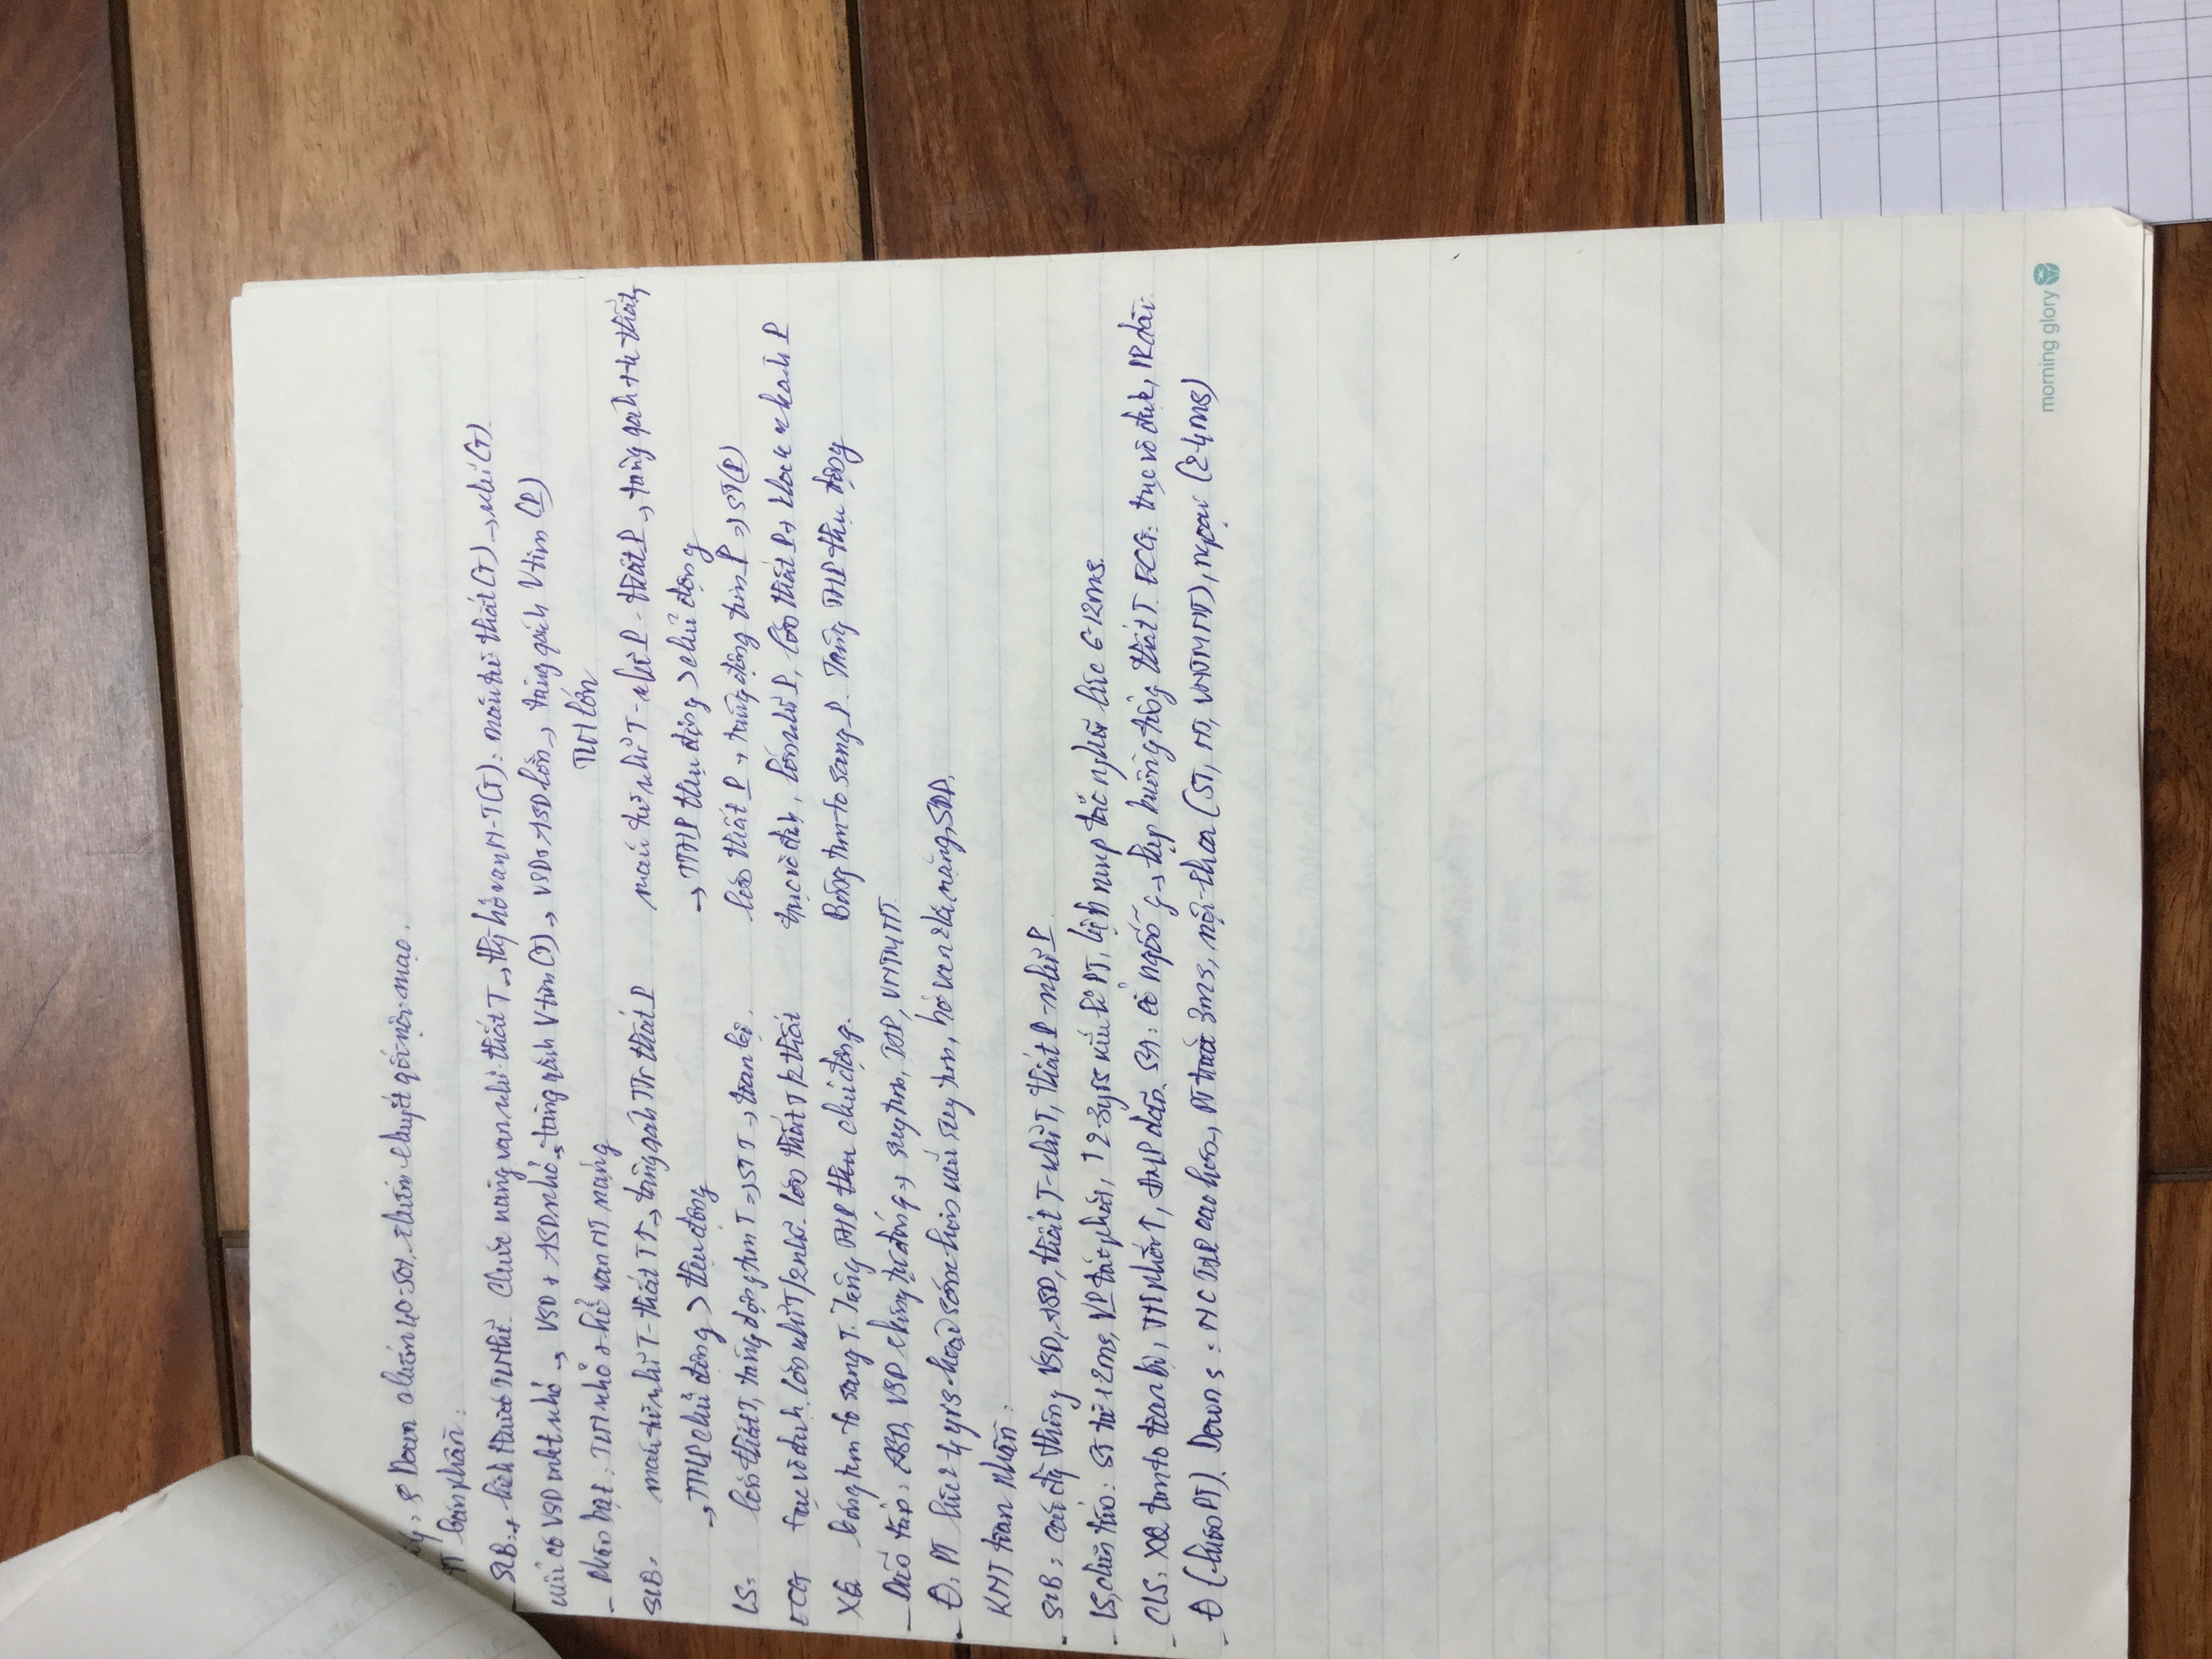 Down chiếm 40-50%. chiếm khuyết gối nội mạc.
bán phần:
- SLB: + kích thước TLN thứ. Chức năng van nhĩ thất T → hở van N-T(T): máu từ thất (T) → nhĩ (T).
nếu có VSD nhỏ → VSD + ASD nhỏ → tăng gánh V tim (T) → VSD + ASD lớn → tăng gánh V tim (P)
- Phân biệt: TLN nhỏ + hở van NT nặng
TLN lớn
SLB: máu từ nhĩ T - thất T↑ → tăng gánh TTr thất P
máu từ nhĩ T - nhĩ P - thất P → tăng gánh ttr thất
→ TMP chủ động > thụ động
→ TMP thụ động > chủ động
LS: lớn thất T, tăng động tim T => ST T → toàn bộ.
lớn thất P + tăng động tim P => ST (P)
ECG trục vô định, lớn nhĩ T/2 nhĩ. lớn thất T/2 thất
trục vô định, lớn nhĩ P, lớn thất P + block nhánh P
XQ bóng tim to sang T. Tăng THP chủ động.
Bóng tim to sang P. Tăng THP thụ động
- Diễn tiến: ASD, VSD không tự đóng → suy tim, TAP, VNTMNT.
- Đ: PT lúc 2-4 yrs hoặc sớm hơn nếu suy tim, hở van 2 lá nặng, SDD.
KNT toàn phần:
- SLB: thông VSD, ASD, thất T-nhĩ T, thất P-nhĩ P.
- LS, diễn tiến: ST từ 1-2ms, VP tái phát, † 2-3yrs nếu ko PT, bệnh mmp tắc nghẽn lúc 6-12ms.
- CLS: XQ tim to toàn bộ, TH phổi ↑, ĐMP dãn. SA: cổ ngỗng → hẹp buồng tống thất T. ECG: trục vô định, PR dài.
- Đ (luôn PT). Down s: NC TAP cao hơn, PT trước 3ms, nội khoa (ST, NT, VNTMNT), ngoại (2-4ms)
morning glory